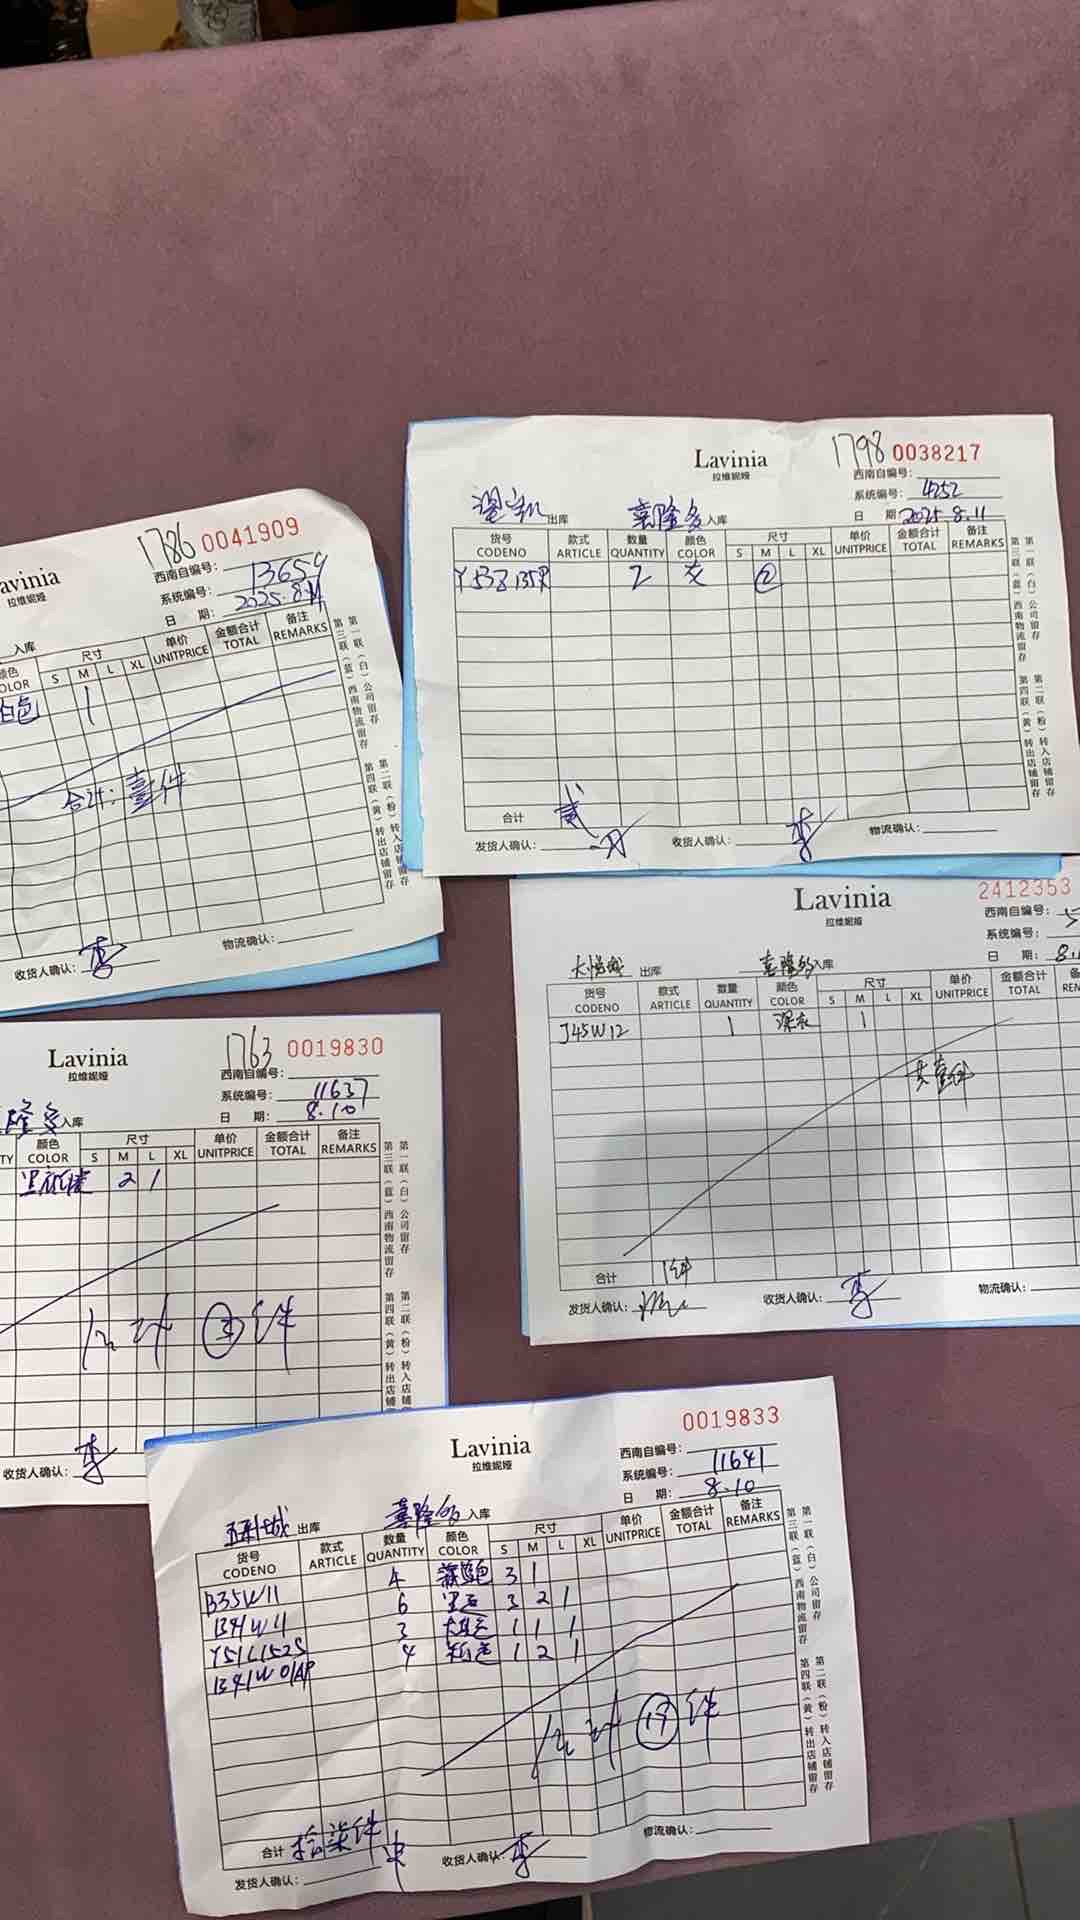 1798 0038217
Lavinia
拉维妮娅
西南自编号:
系统编号: 4252
出库 喜隆多入库
日 期 2025.8.11
货号 款式 数量 颜色 尺寸 单价 金额合计 备注
CODENO ARTICLE QUANTITY COLOR S M L XL UNITPRICE TOTAL REMARKS
2 ②
合计 贰
发货人确认: 收货人确认: 李 物流确认:
第一联(白)公司留存 第二联(粉)转入店铺留存
第三联(蓝)西南物流留存 第四联(黄)转出店铺留存
1786 0041909
avinia
拉维妮娅
西南自编号:
系统编号: 13659
日 期:
入库
颜色 尺寸 单价 金额合计 备注
OLOR S M L XL UNITPRICE TOTAL REMARKS
白色 1
合计: 壹件
收货人确认: 李 物流确认:
第一联(白)公司留存 第二联(粉)转入店铺留存
第三联(蓝)西南物流留存 第四联(黄)转出店铺留存
2412353
Lavinia
拉维妮娅
西南自编号:
系统编号:
日 期:
大悦城 出库 喜隆多入库
货号 款式 数量 颜色 尺寸 单价 金额合计
CODENO ARTICLE QUANTITY COLOR S M L XL UNITPRICE TOTAL
J45W12 1 深灰 1
共壹件
合计 1件
发货人确认: 收货人确认: 李 物流确认:
1763 0019830
Lavinia
拉维妮娅
西南自编号:
系统编号: 11637
隆多入库
日 期: 8.10
颜色 尺寸 单价 金额合计 备注
TY COLOR S M L XL UNITPRICE TOTAL REMARKS
2 1
合计 ③ 件
收货人确认: 李
第一联(白)公司留存 第二联(粉)转入店铺
第三联(蓝)西南物流留存 第四联(黄)转出店铺
0019833
Lavinia
拉维妮娅
西南自编号:
系统编号: 11641
日 期: 8.10
出库 喜隆多入库
货号 款式 数量 颜色 尺寸 单价 金额合计 备注
CODENO ARTICLE QUANTITY COLOR S M L XL UNITPRICE TOTAL REMARKS
B35W11 4 3 1
B41W11 6 黑色 3 2 1
Y51L1525 3 1 1 1
B41W01AP 4 粉色 1 2 1
合计 ⑰ 件
合计 拾柒件
发货人确认: 收货人确认: 李 物流确认:
第一联(白)公司留存 第二联(粉)转入店铺留存
第三联(蓝)西南物流留存 第四联(黄)转出店铺留存